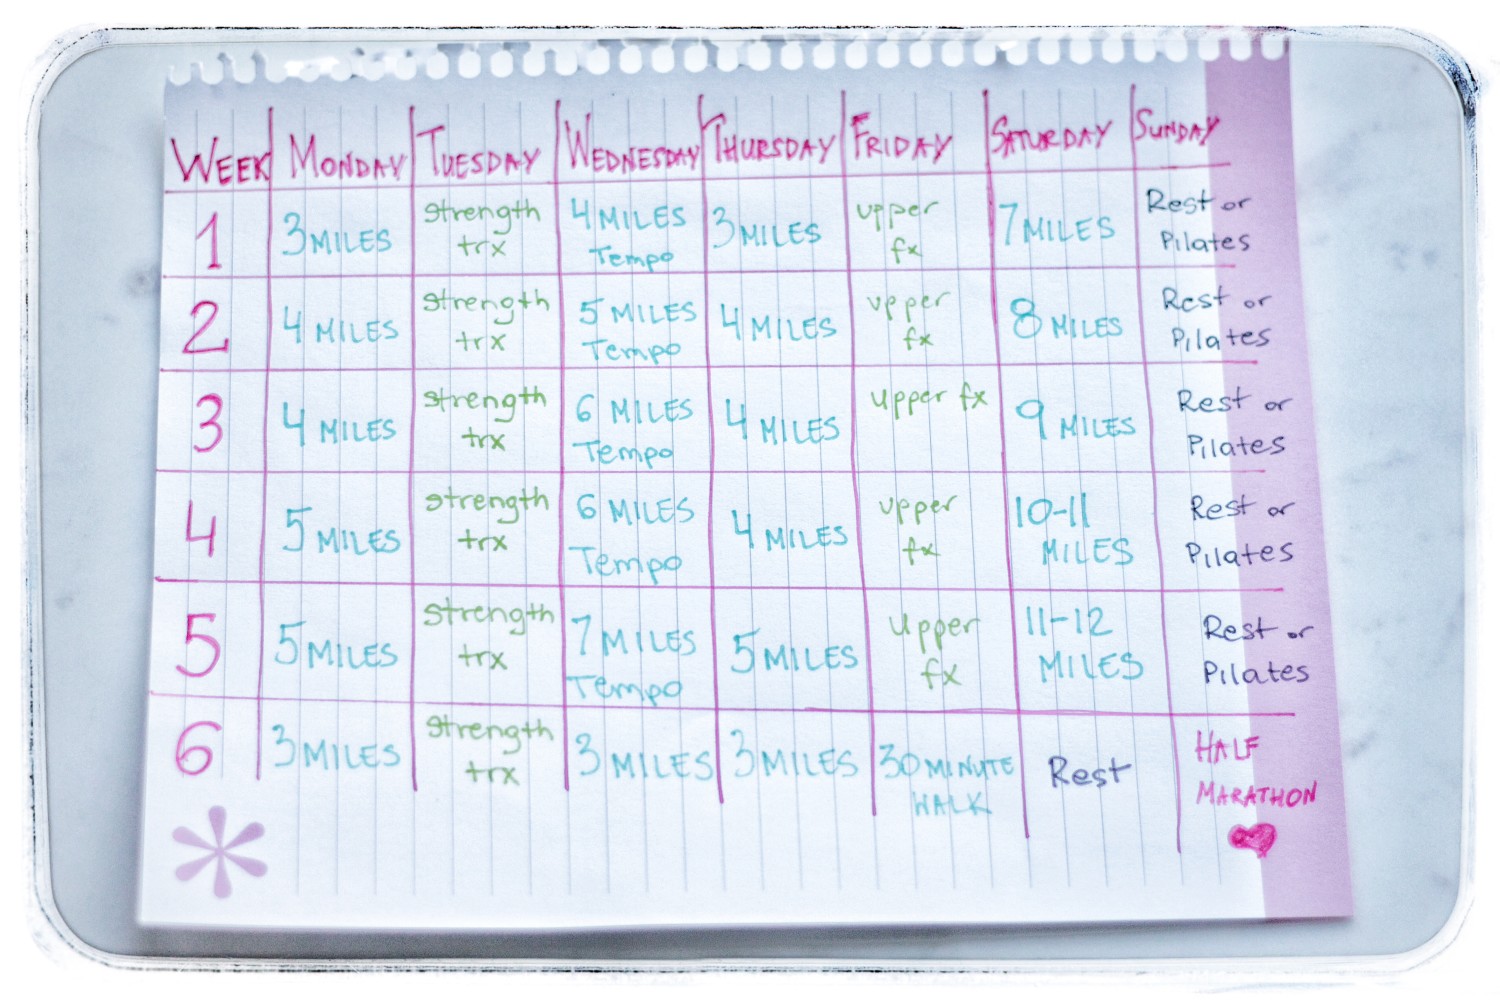 WEEK MONDAY TUESDAY WEDNESDAY THURSDAY FRIDAY SATURDAY SUNDAY
1 3 MILES strength trx 4 MILES Tempo 3 MILES upper fx 7 MILES Rest or Pilates
2 4 MILES strength trx 5 MILES Tempo 4 MILES upper fx 8 MILES Rest or Pilates
3 4 MILES strength trx 6 MILES Tempo 4 MILES upper fx 9 MILES Rest or Pilates
4 5 MILES strength trx 6 MILES Tempo 4 MILES upper fx 10-11 MILES Rest or Pilates
5 5 MILES strength trx 7 MILES Tempo 5 MILES upper fx 11-12 MILES Rest or Pilates
6 3 MILES strength trx 3 MILES 3 MILES 30 MINUTE WALK Rest HALF MARATHON